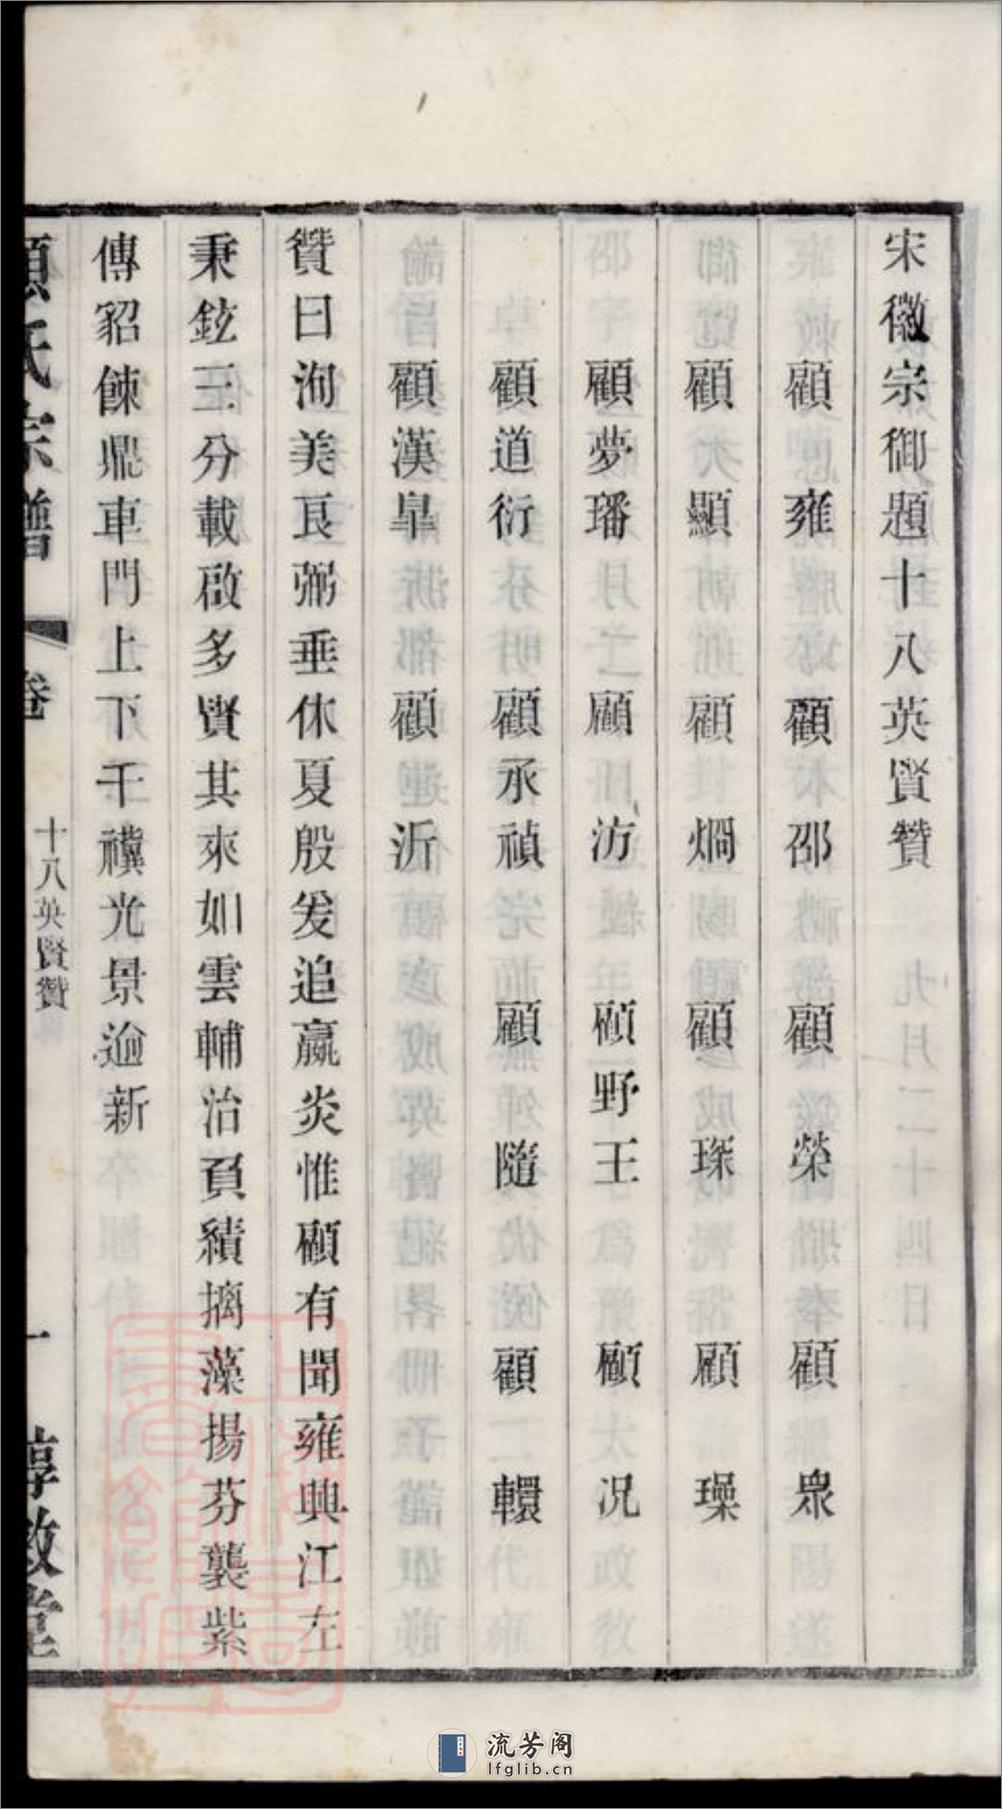 宋徽宗御題十八英賢贊
顧雍 顧邵 顧榮 顧眾
顧顯 顧烱 顧琛 顧璪
顧夢璠 顧汸 顧野王 顧况
顧道衍 顧承禎 顧隨 顧轘
顧漢臯 顧沂
贊曰洵美良弼垂休夏殷爰追嬴炎惟顧有聞雍興江左
秉鉉三分載啟多賢其來如雲輔治頁績摛藻揚芬襲紫
傳貂餗鼎車門上下千禩光景逾新
顧氏宗譜
卷
十八英賢贊
一
惇敘堂
流芳阁
lfglib.cn